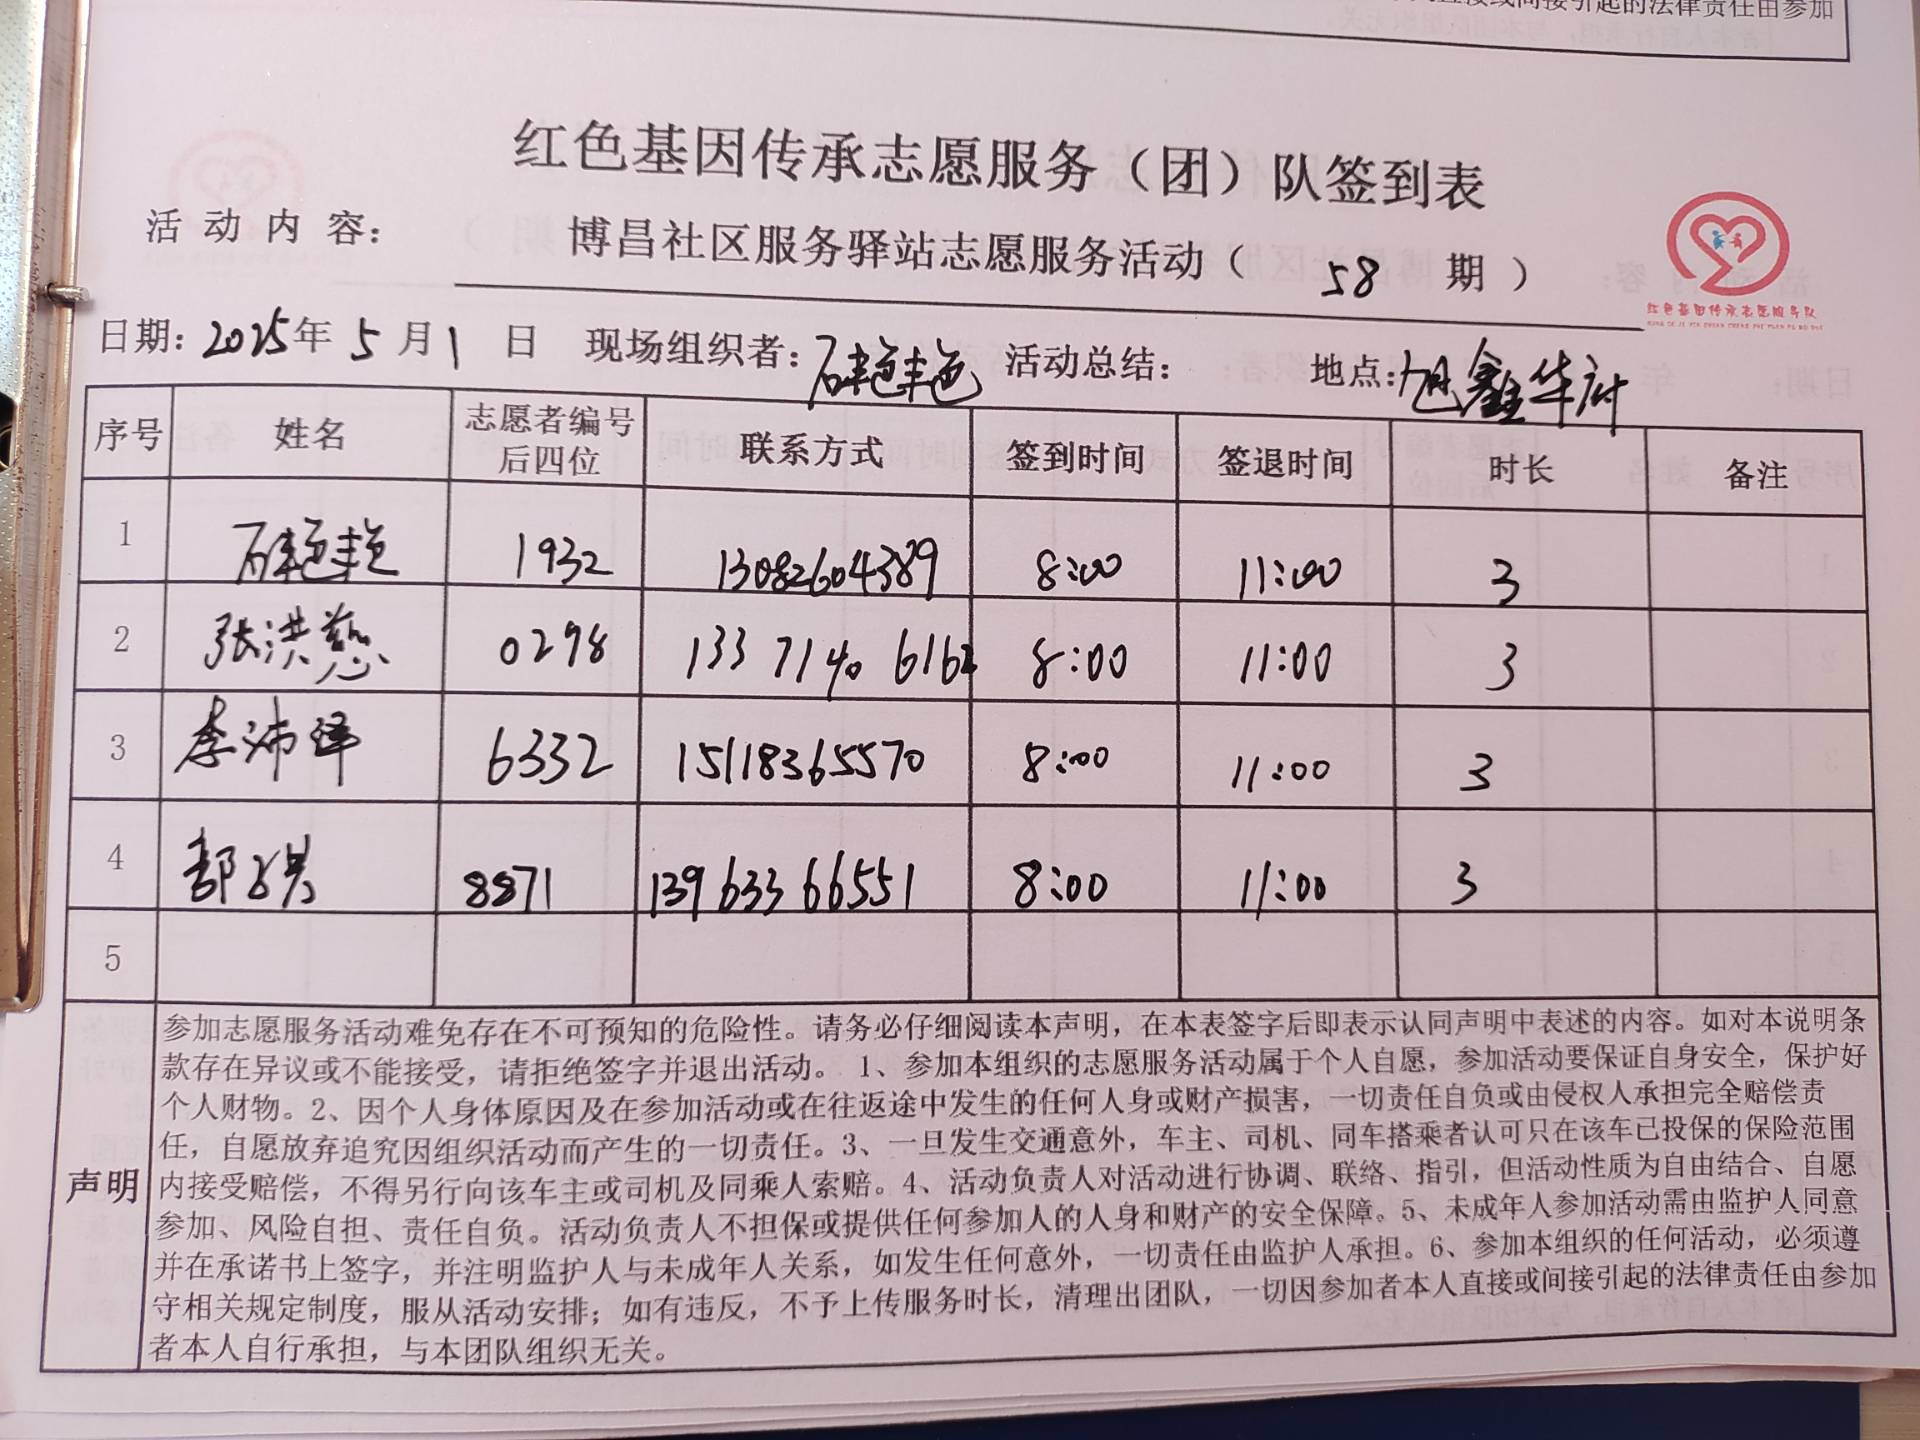 直接或间接引起的法律责任由参加
红色基因传承志愿服务（团）队签到表
活动内容： 博昌社区服务驿站志愿服务活动（ 58 期 ）
红色基因传承志愿服务队
日期：2025年 5 月 1 日 现场组织者：石艳艳 活动总结： 地点：旭鑫华府
序号 姓名 志愿者编号后四位 联系方式 签到时间 签退时间 时长 备注
1 石艳艳 1932 13082604389 8:00 11:00 3
2 张洪慈 0298 133 7140 6162 8:00 11:00 3
3 李沛泽 6332 15118365570 8:00 11:00 3
4 8871 139 633 66551 8:00 11:00 3
5
声明
参加志愿服务活动难免存在不可预知的危险性。请务必仔细阅读本声明，在本表签字后即表示认同声明中表述的内容。如对本说明条
款存在异议或不能接受，请拒绝签字并退出活动。 1、参加本组织的志愿服务活动属于个人自愿，参加活动要保证自身安全，保护好
个人财物。2、因个人身体原因及在参加活动或在往返途中发生的任何人身或财产损害，一切责任自负或由侵权人承担完全赔偿责
任，自愿放弃追究因组织活动而产生的一切责任。3、一旦发生交通意外，车主、司机、同车搭乘者认可只在该车已投保的保险范围
内接受赔偿，不得另行向该车主或司机及同乘人索赔。4、活动负责人对活动进行协调、联络、指引，但活动性质为自由结合、自愿
参加、风险自担、责任自负。活动负责人不担保或提供任何参加人的人身和财产的安全保障。5、未成年人参加活动需由监护人同意
并在承诺书上签字，并注明监护人与未成年人关系，如发生任何意外，一切责任由监护人承担。6、参加本组织的任何活动，必须遵
守相关规定制度，服从活动安排；如有违反，不予上传服务时长，清理出团队，一切因参加者本人直接或间接引起的法律责任由参加
者本人自行承担，与本团队组织无关。